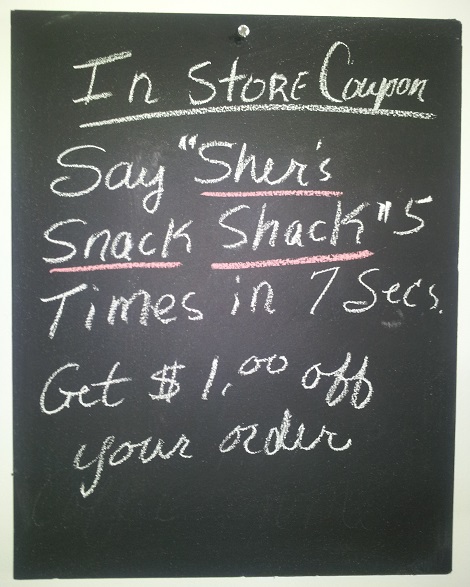 In STORE Coupon
Say "Sher's
Snack Shack" 5
Times in 7 Secs.
Get $1.00 off
your order